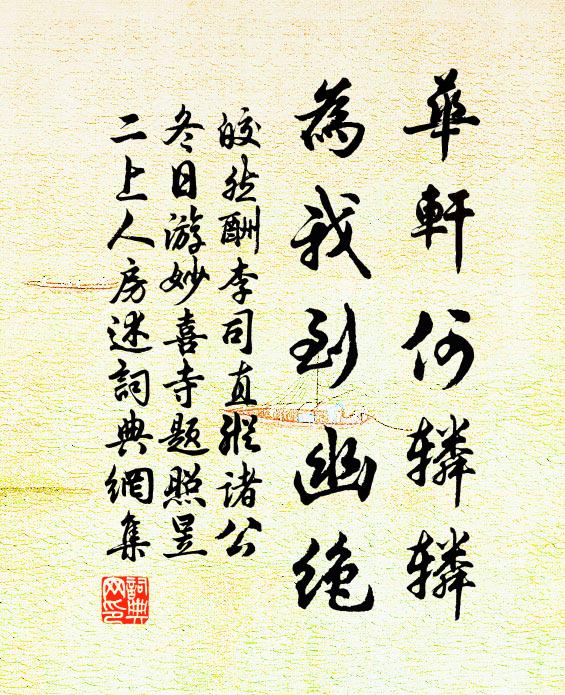 華軒何轔轔
為我到幽絶
皎然酬李司直縱諸公
冬日游妙喜寺題照昱
二上人房述詞典網集
詞典網印